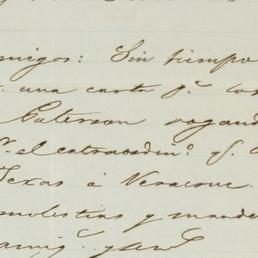 migos: Sin tiempo
una carta p.ª los
Paterson rogand
el extraordin.º q.
Texas á Veracruz.
molestias y mande
amig.º